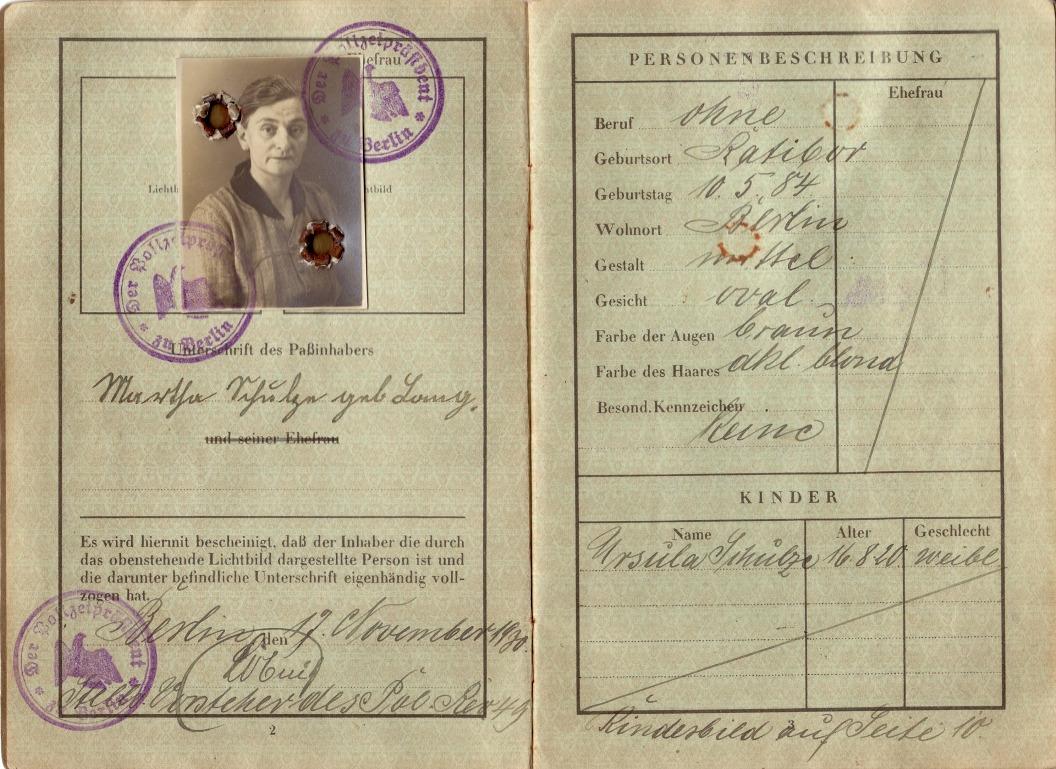 Ehefrau
Der Polizeipräsident
zu Berlin
Der Polizeipräsident
zu Berlin
Unterschrift des Paßinhabers
Martha Schulze geb Lang.
und seiner Ehefrau
Es wird hiermit bescheinigt, daß der Inhaber die durch
das obenstehende Lichtbild dargestellte Person ist und
die darunter befindliche Unterschrift eigenhändig voll-
zogen hat.
Berlin, den 17. November 1930.
Vorsteher des Pol. Rev 49
Der Polizeipräsident
zu Berlin
2
PERSONENBESCHREIBUNG
Ehefrau
Beruf ohne
Geburtsort Ratibor
Geburtstag 10. 5. 84
Wohnort Berlin
Gestalt mittel
Gesicht oval
Farbe der Augen braun
Farbe des Haares dkl. blond
Besond. Kennzeichen
Keine
KINDER
Name Alter Geschlecht
Ursula Schulze 16.8.20. weibl.
Kindesbild auf Seite 10.
3